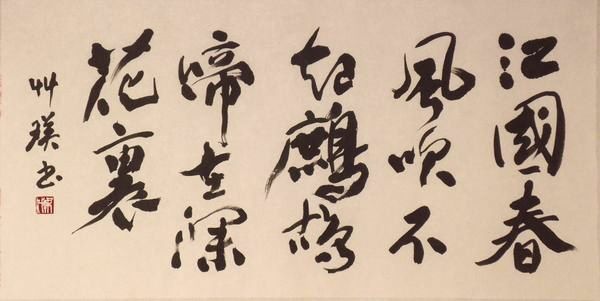 江國春
風吹不
起鷓鴣
啼在深
花裏
艸瑛书